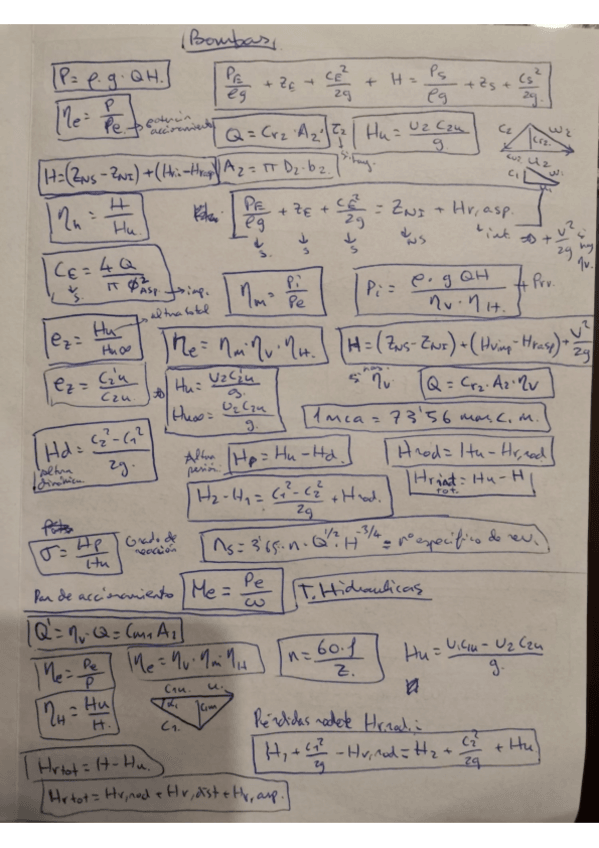 Bombas
P = ρ·g·QH.
P_E/ρg + z_E + c_E²/2g + H = P_S/ρg + z_S + c_S²/2g
η_e = P/P_e → accionamiento
Q = C_r2 · A_2'
H_u = U_2 C_2u / g
C_2 C_r2 W_2
U_2
C_1 W_1
H = (Z_NS - Z_NI) + (Hri - Hrasp)
A_2 = π D_2 · b_2.
η_h = H/H_u
P_E/ρg + z_E + c_E²/2g = Z_NI + Hr,asp.
↓S. ↓S ↓S ↓NS ↓int ⇒ + V²/2g
C_E = 4Q / π φ²_Asp. → imp.
↓S.
η_m = P_i/P_e
P_i = ρ·g QH / η_v · η_H. + Prr.
altura total
e_z = H_u/H_u∞
η_e = η_m·η_v·η_H.
H = (Z_NS - Z_NI) + (Hrimp - Hrasp) + V²/2g
e_z = C_2'u/C_2u ⇒
H_u = U_2 C_2'u / g.
H_u∞ = U_2 C_2u / g.
η_v
Q = C_r2 · A_2 · η_v
1 mca = 73'56 mm.c.m.
H_d = c_2² - c_1² / 2g.
Altura dinámica.
Altura presión
H_p = H_u - H_d.
Hrod = H_u - Hr,rod
Hr int rot. = H_u - H
H_2 - H_1 = c_1² - c_2² / 2g + Hrod.
σ = H_p/H_u
Grado de reacción
n_s = 3'65 · n · Q^1/2 · H^-3/4 = nº específico de rev.
Par de accionamiento
M_e = P_e/ω
T. Hidraulicas
Q' = η_v · Q = C_m1 A_1
η_e = P_e/P
η_e = η_v · η_m · η_H
n = 60·f / Z.
H_u = U_1 C_1u - U_2 C_2u / g.
η_H = H_u/H.
C_1u. U.
α_1 C_1m
C_1.
Pérdidas rodete Hr,rod.:
H_1 + c_1²/2g - Hr,rod = H_2 + c_2²/2g + H_u
Hrtot = H - H_u.
Hrtot = Hr,rod + Hr,dist + Hr,asp.